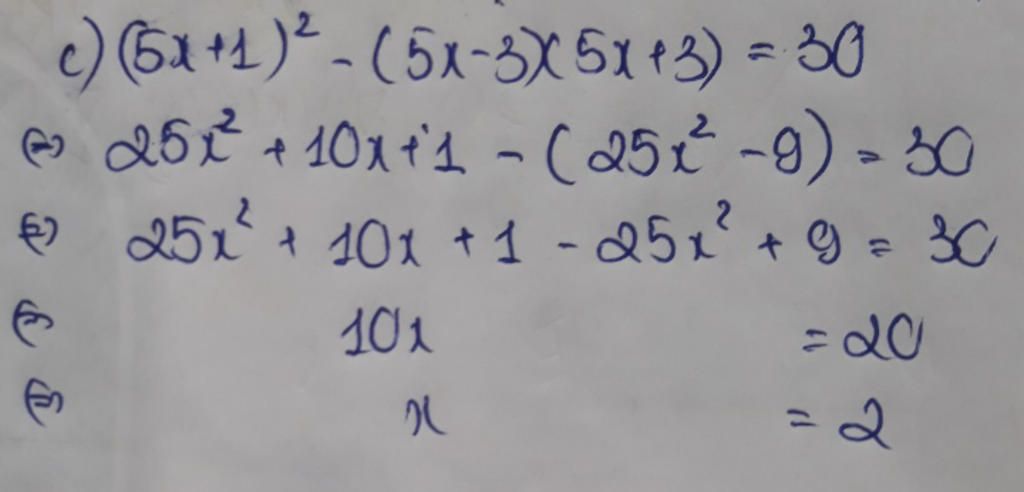 c) (5x+1)² - (5x-3)(5x+3) = 30
⇔ 25x² + 10x + 1 - (25x² - 9) = 30
⇔ 25x² + 10x + 1 - 25x² + 9 = 30
⇔ 10x = 20
⇔ x = 2